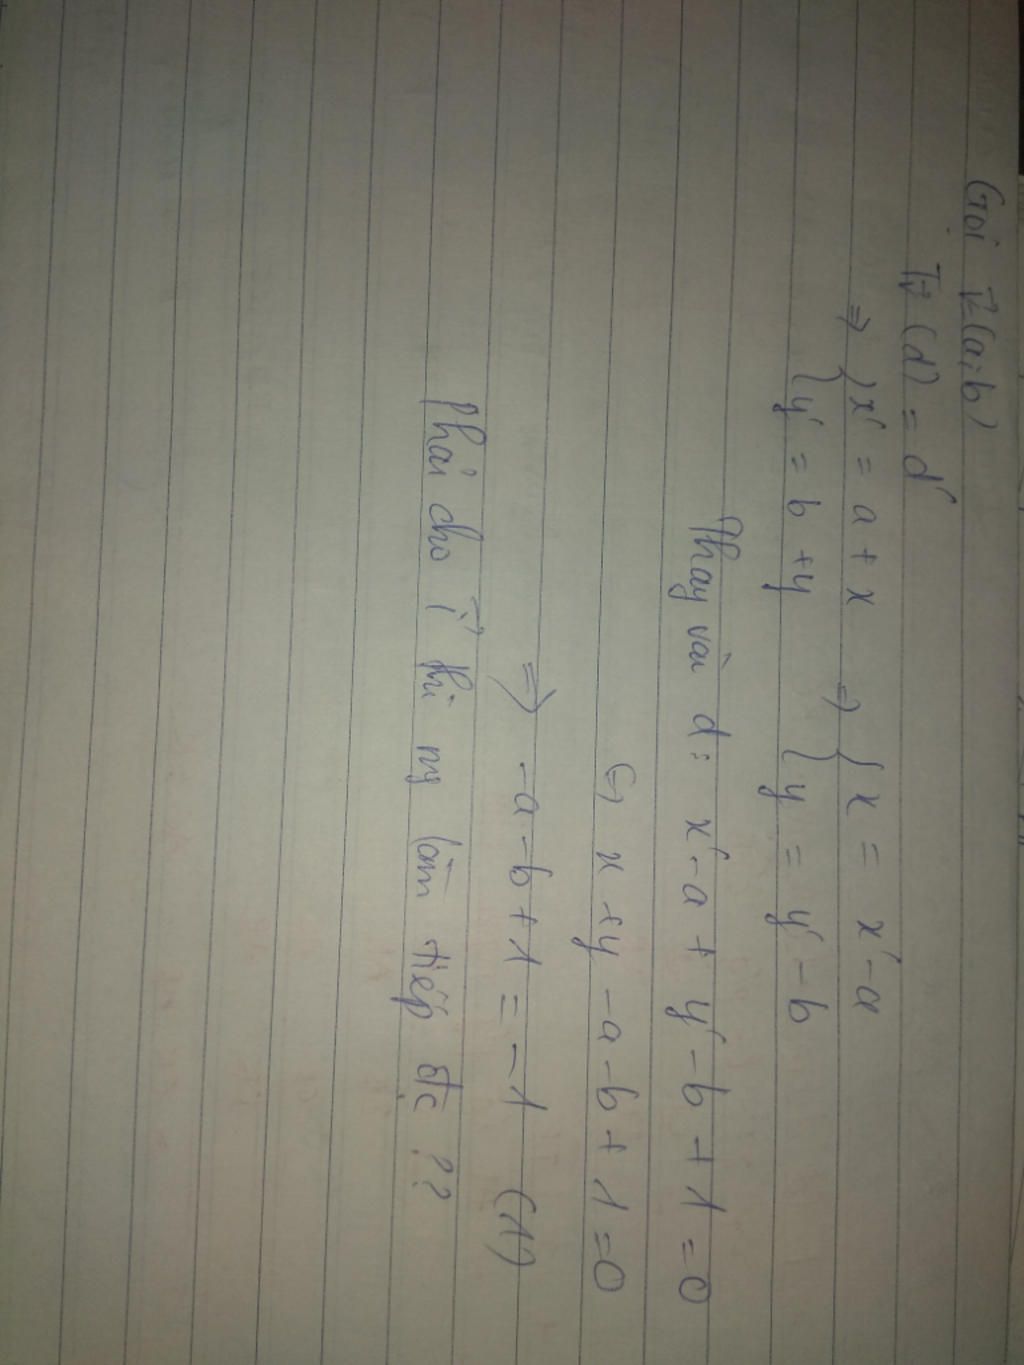 Gọi v⃗(a;b)
Tv⃗ (d) = d'
⇒ { x' = a + x ⇒ { x = x' - a
{ y' = b + y { y = y' - b
Thay vào d: x' - a + y' - b + 1 = 0
⇔ x + y - a - b + 1 = 0
⇒ -a - b + 1 = -1 (1)
phải cho i⃗ thì ms làm tiếp đc ??